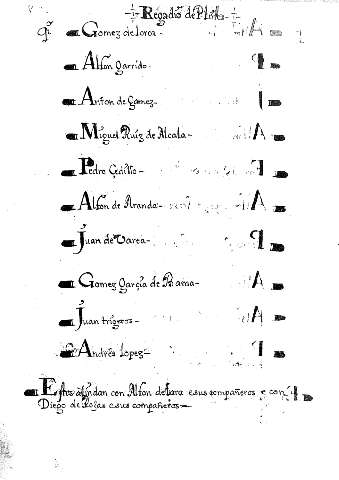 Regadio de Plata
Gomez de lorca
Alfon garrido
Anton de Gamez
Miguel Ruiz de Alcala
Pedro
Alfon de Aranda
Juan de Varea
Gomez Garçia de Rama
Juan trigeros
Andres Lopez
Estos alindan con Alfon de lara e sus compañeros e con
Diego de Rojas e sus compañeros